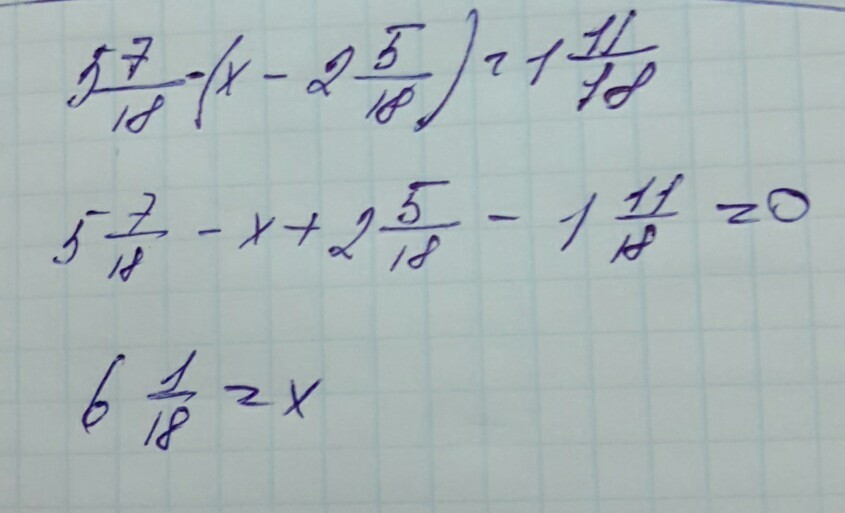 5 7/18 - (x - 2 5/18) = 1 11/18
5 7/18 - x + 2 5/18 - 1 11/18 = 0
6 1/18 = x